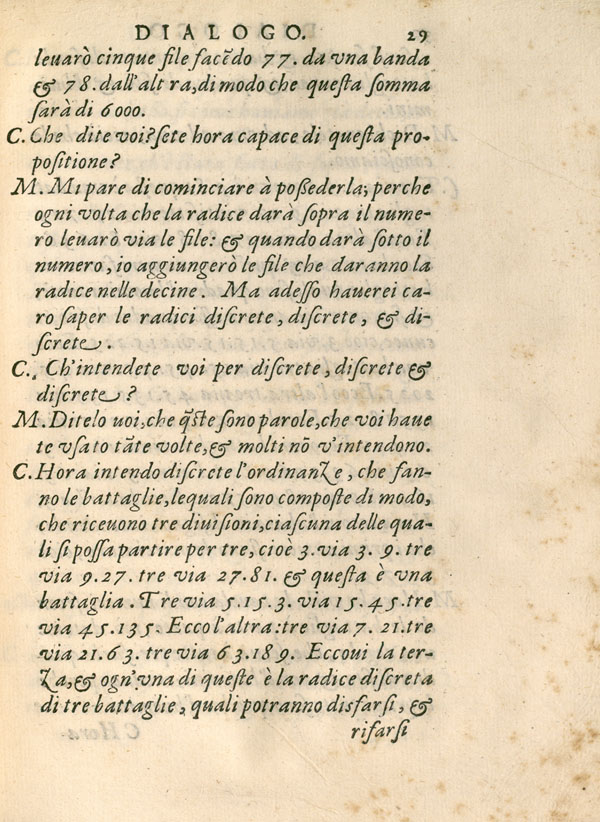 DIALOGO. 29
leuarò cinque file facẽdo 77. da vna banda
& 78. dall'alt ra, di modo che questa somma
sarà di 6000.
C. Che dite voi? sete hora capace di questa pro-
positione?
M. Mi pare di cominciare à poßederla; perche
ogni volta che la radice darà sopra il nume-
ro leuarò via le file: & quando darà sotto il
numero, io aggiungerò le file che daranno la
radice nelle decine. Ma adesso hauerei ca-
ro saper le radici discrete, discrete, & di-
screte.
C. Ch'intendete voi per discrete, discrete &
discrete?
M. Ditelo uoi, che q̃ste sono parole, che voi haue
te vsato tãte volte, & molti nõ v'intendono.
C. Hora intendo discrete l'ordinanze, che fan-
no le battaglie, lequali sono composte di modo,
che riceuono tre diuisioni, ciascuna delle qua-
li si possa partire per tre, cioè 3. via 3. 9. tre
via 9. 27. tre via 27. 81. & questa è vna
battaglia. Tre via 5. 15. 3. via 15. 45. tre
via 45. 135. Ecco l'altra: tre via 7. 21. tre
via 21. 63. tre via 63. 189. Eccoui la ter-
za, & ogn'vna di queste è la radice discreta
di tre battaglie, quali potranno disfarsi, &
rifarsi